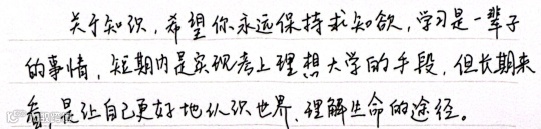 关于知识，希望你永远保持求知欲，学习是一辈子
的事情，短期内是实现考上理想大学的手段，但长期来
看，是让自己更好地认识世界、理解生命的途径。